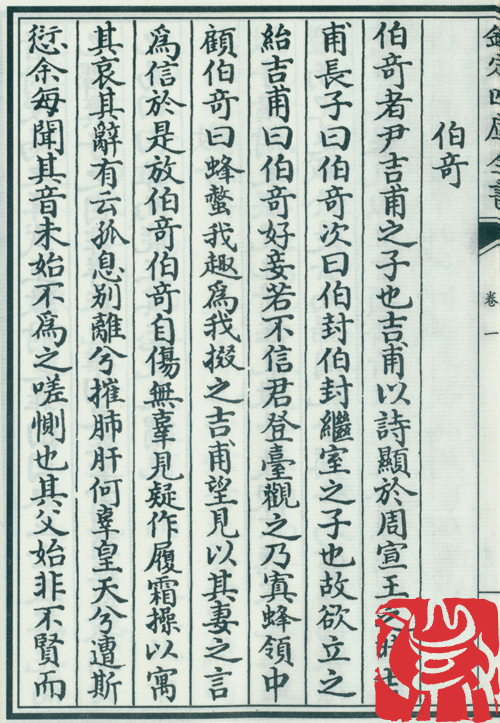 卷一
伯奇
伯奇者尹吉甫之子也吉甫以詩顯於周宣王之
甫長子曰伯奇次曰伯封伯封繼室之子也故欲立之
紿吉甫曰伯奇好妾若不信君登臺觀之乃寘蜂領中
顧伯奇曰蜂螫我趣為我掇之吉甫望見以其妻之言
為信於是放伯奇伯奇自傷無辜見疑作履霜操以寓
其哀其辭有云孤息别離兮摧肺肝何辜皇天兮遭斯
愆余每聞其音未始不為之嗟惻也其父始非不賢而